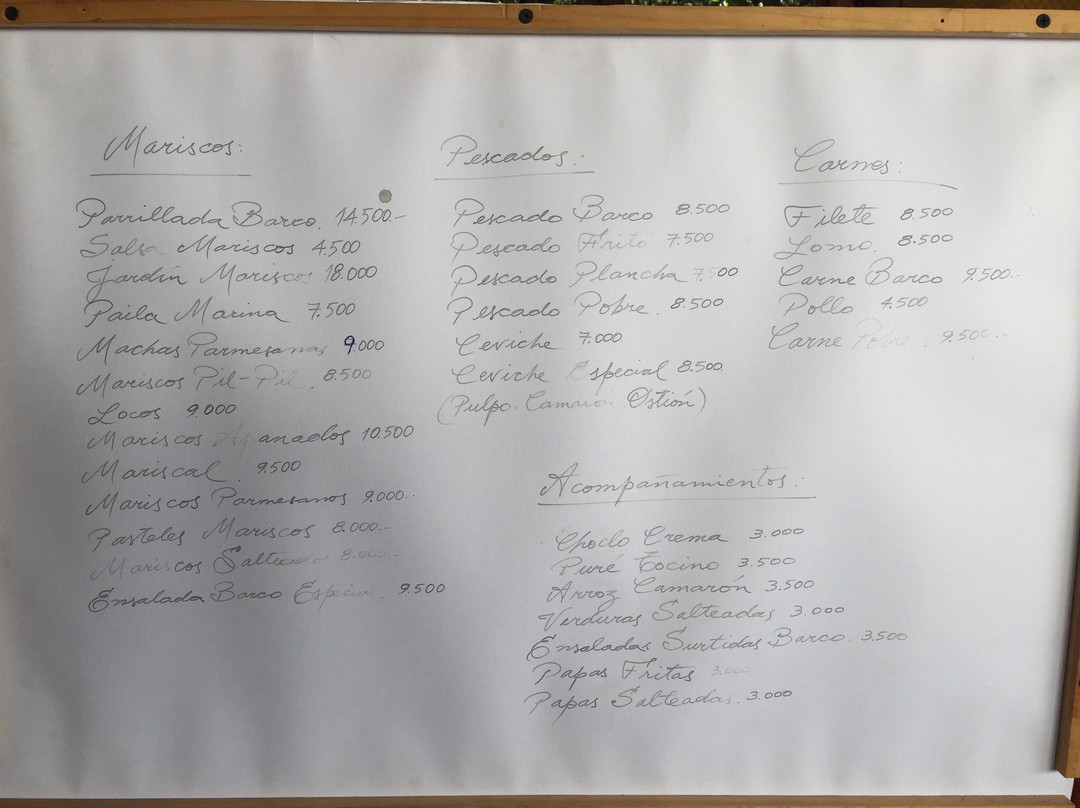 Mariscos:
Parrillada Barco. 14.500-
Salsa Mariscos 4.500
Jardín Mariscos 18.000
Paila Marina 7.500
Machas Parmesanas 9.000
Mariscos Pil-Pil. 8.500
Locos 9.000
Mariscos Apanados 10.500
Mariscal. 9.500
Mariscos Parmesanos 9.000.-
Pasteles Mariscos 8.000.-
Mariscos Salteado 8.000.-
Ensalada Barco Especial. 9.500
Pescados:
Pescado Barco 8.500
Pescado Frito 7.500
Pescado Plancha 7.500
Pescado Pobre. 8.500
Ceviche 7.000
Ceviche Especial 8.500
(Pulpo. Camarón Ostión)
Carnes:
Filete 8.500
Lomo. 8.500
Carne Barco 9.500.-
Pollo 4.500
Carne Pobre. 9.500.-
Acompañamientos:
Choclo Crema 3.000
Puré Tocino 3.500
Arroz Camarón 3.500
Verduras Salteadas 3.000
Ensaladas Surtidas Barco. 3.500
Papas Fritas 3.000
Papas Salteadas. 3.000